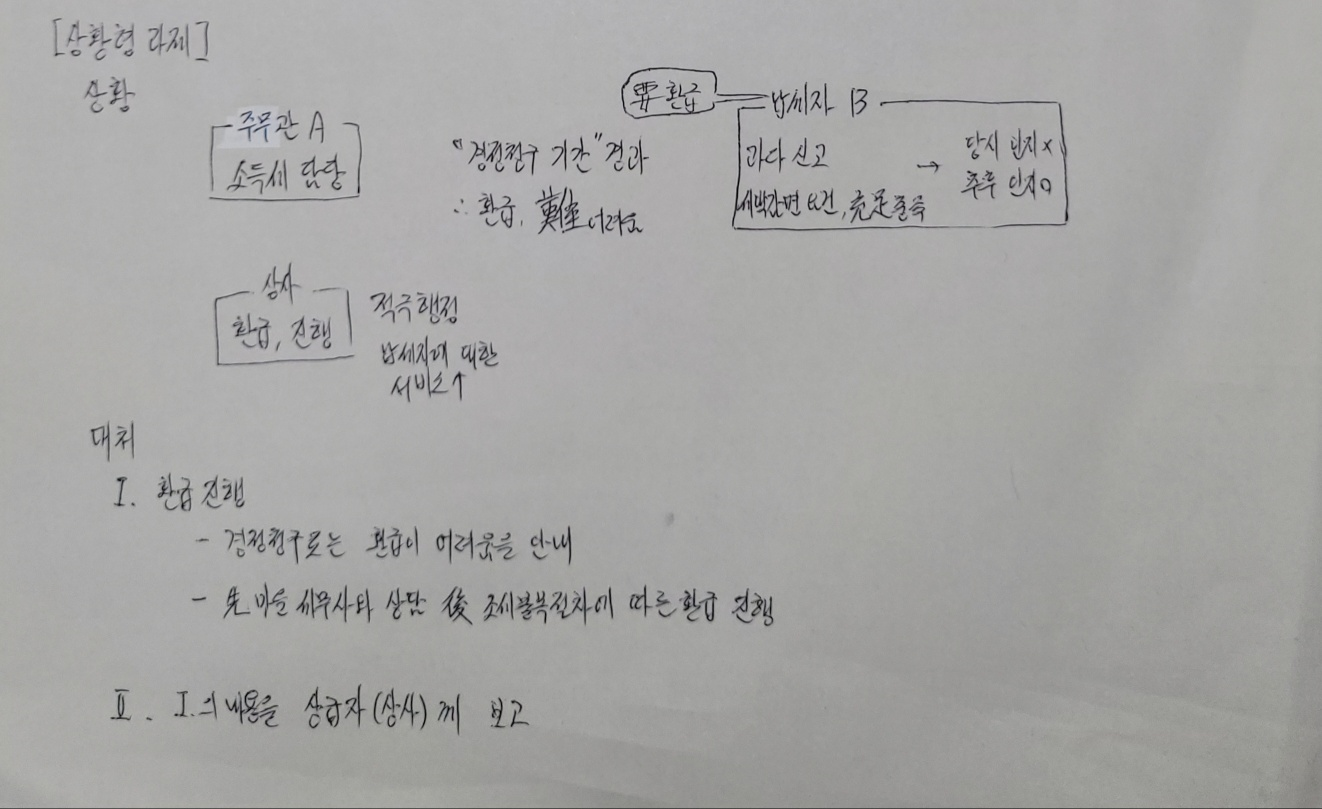 [상황형 과제]
상황
주무관 A
소득세 담당
"경정청구 기간" 경과
∴ 환급, 難 어려움
要 환급
납세자 B
과다 신고
세액감면 요건, 충족
→
당시 인지 x
추후 인지 o
상사
환급, 진행
적극행정
납세자에 대한
서비스↑
대처
Ⅰ. 환급 진행
- 경정청구로는 환급이 어려움을 안내
- 先 마을 세무사와 상담 後 조세불복절차에 따른 환급 진행
Ⅱ. Ⅰ.의 내용을 상급자(상사)께 보고